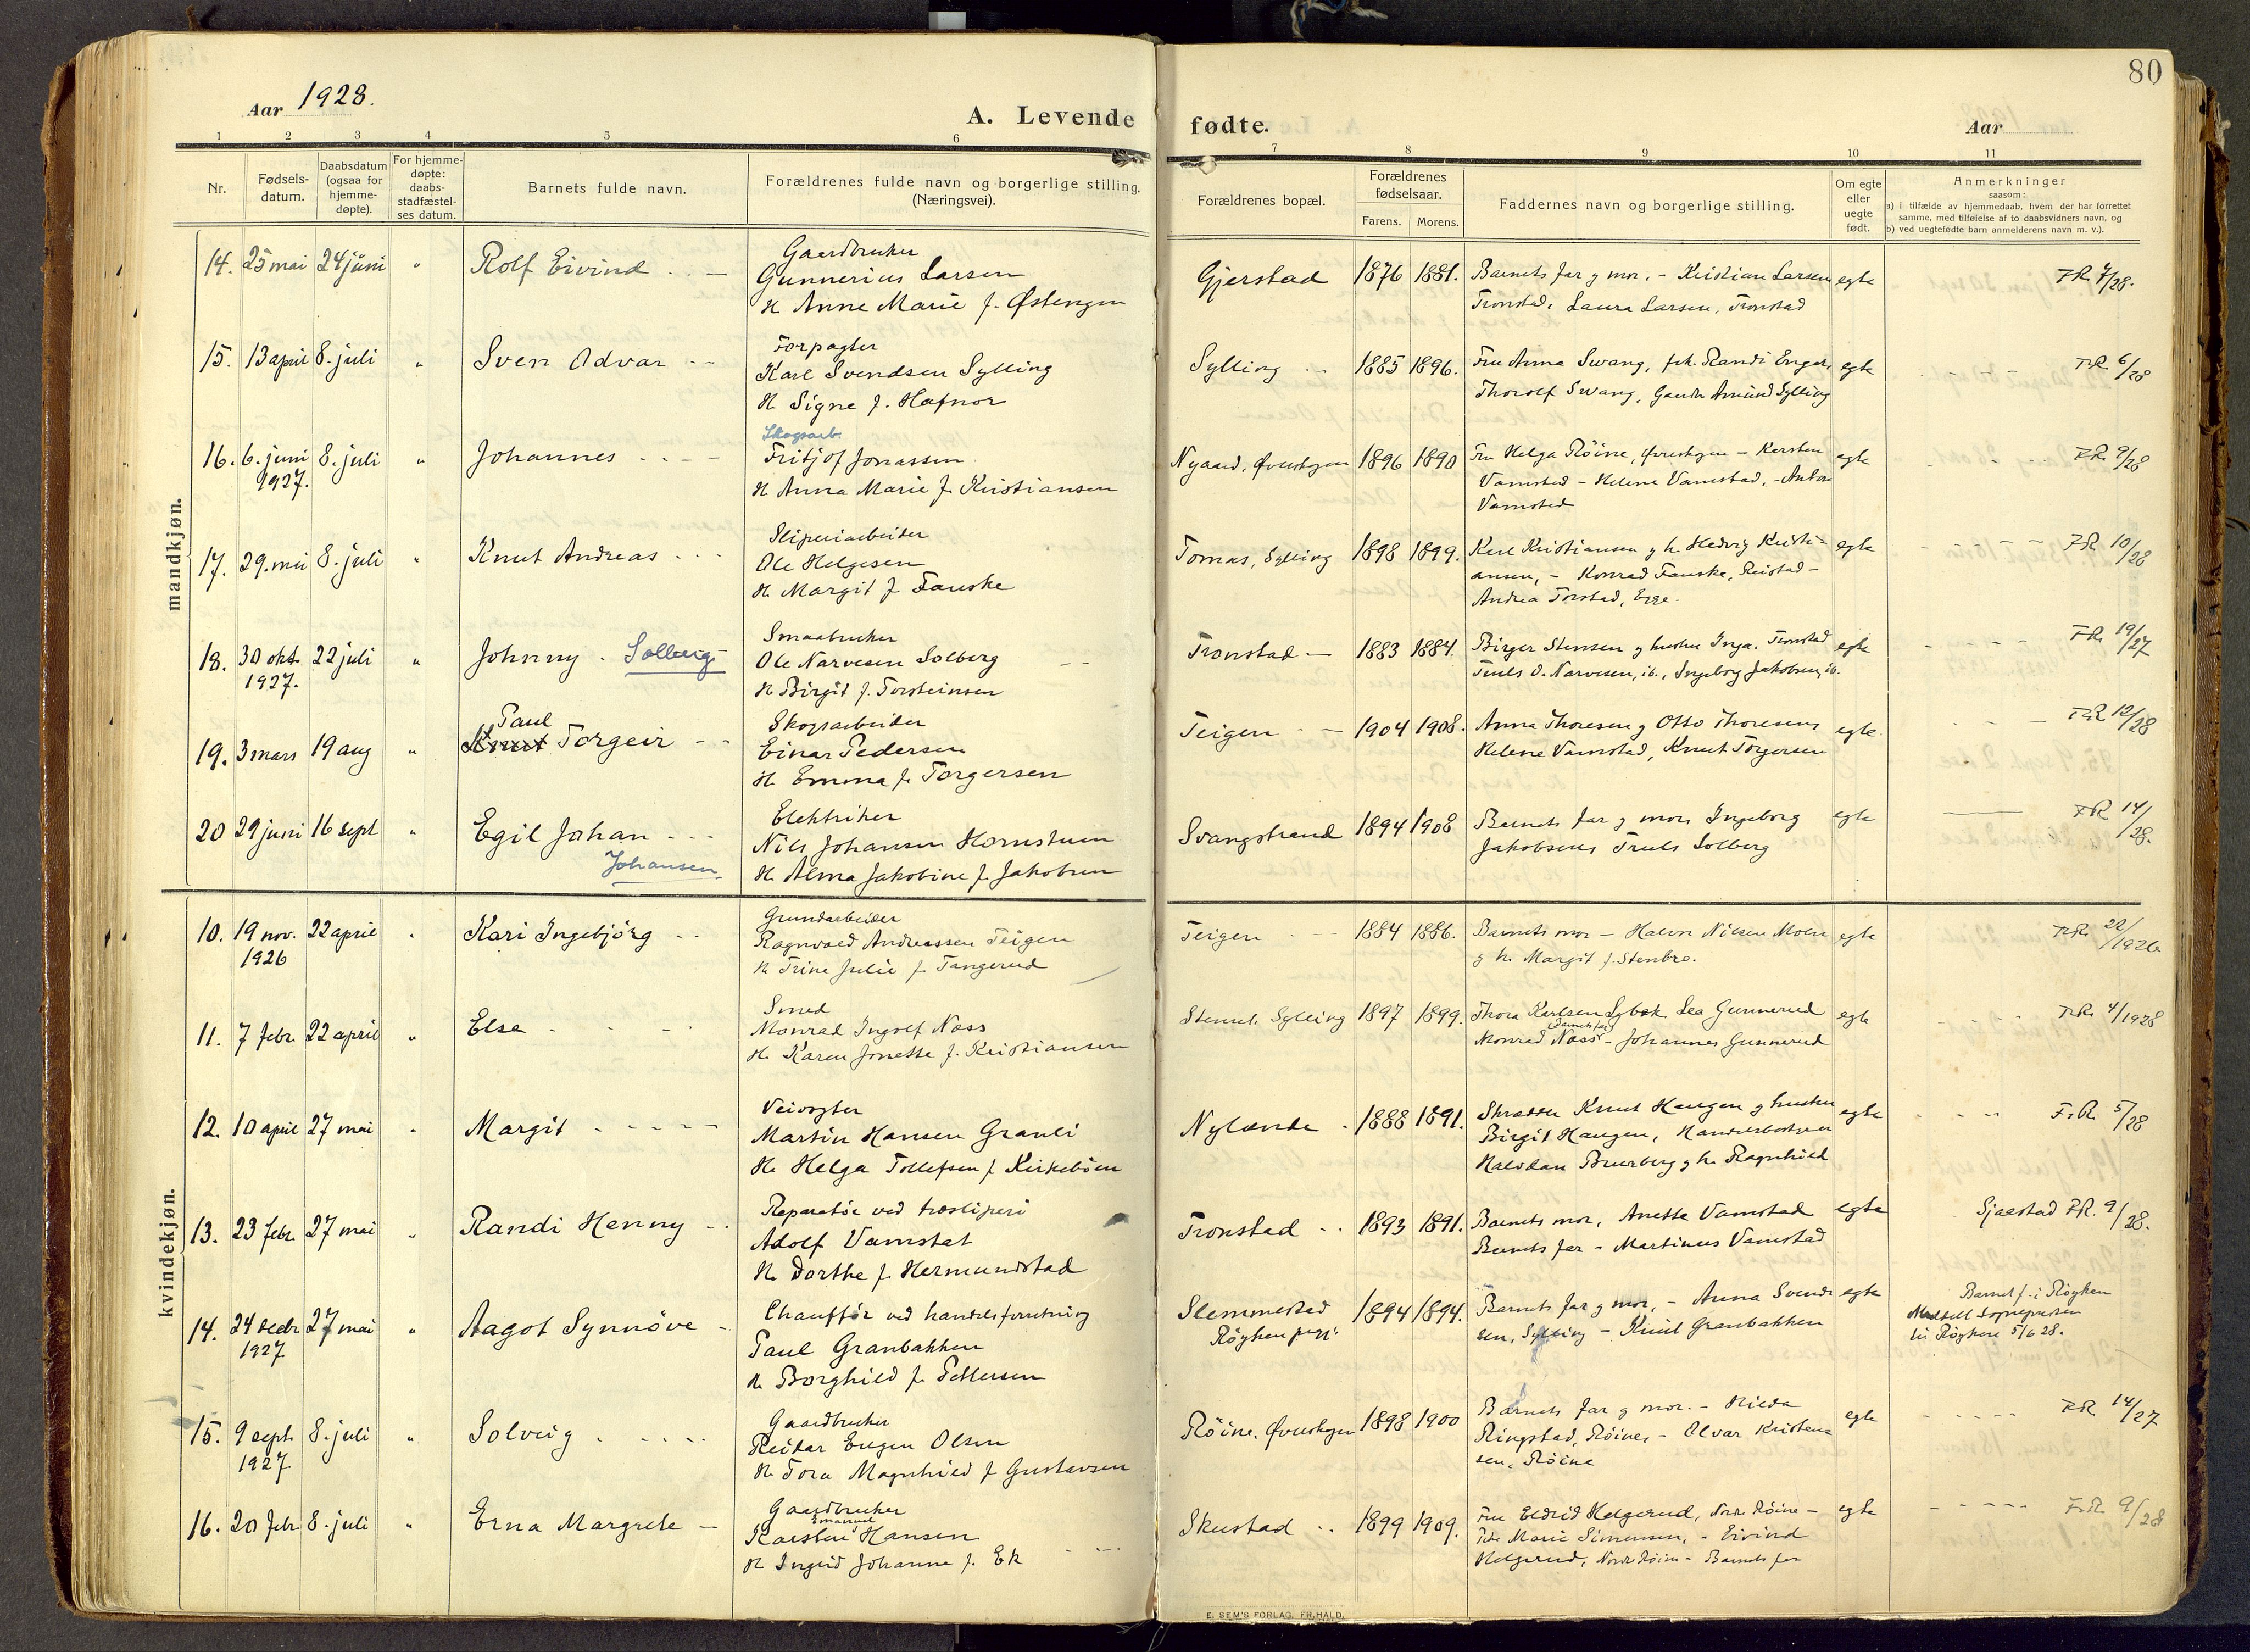 80
Aar 1928.
A. Levende fødte.
Aar
1 2 3 4 5 6 7 8 9 10 11
Nr.
Fødsels-
datum.
Daabsdatum
(ogsaa for
hjemme-
døpte).
For hjemme-
døpte:
daabs-
stadfæstel-
ses datum.
Barnets fulde navn.
Forældrenes fulde navn og borgerlige stilling.
(Næringsvei).
Forældrenes bopæl.
Forældrenes
fødselsaar.
Farens. Morens.
Faddernes navn og borgerlige stilling.
Om egte
eller
uegte
født.
Anmerkninger
saasom:
a) i tilfælde av hjemmedaab, hvem der har forrettet
samme, med tilføielse af to daabsvidners navn, og
b) ved uegtefødte barn anmelderens navn m. v.).
mandkjøn.
14. 25 mai 24 juni " Rolf Eivind
Gaardbruker
Gunnerius Larsen
H. Anne Marie f. Østengen
Gjerstad 1876 1881.
Barnets far g mor, - Kristian Larsen
Tronstad, Laura Larsen, Tronstad
egte
FR 7/28.
15. 13 april 8. juli " Sven Odvar
Forpagter
Karl Svendsen Sylling
H. Signe f. Hafnor
Sylling 1885 1896.
Fru Anna Swang, frk. Randi Enger,
Thorolf Swang, Gaardb Amund Sylling
egte
FR. 6/28
16. 6. juni 8. juli " Johannes
1927.
Skogsarb.
Fritjof Jonassen
H. Anna Marie f. Kristiansen
Nygaard, Øverskogen 1896 1890
Fru Helga Röine, Øverskogen - Kersten
Vamstad - Helene Vamstad, - Anton
Vamstad
egte
FR. 9/28
17. 29. mai 8. juli " Knut Andreas
Sliperiarbeider
Ole Helgesen
H. Margit f. Fauske
Tomas, Sylling 1898 1899.
Karl Kristiansen g h. Hedvig Kristi-
ansen, - Konrad Fauske, Reistad -
Andrea Torstad, Egge.
egte
FR 10/28
18. 30 okt. 22 juli " Johnny Solberg
1927.
Smaabruker
Ole Narvesen Solberg
H. Birgit f. Torsteinsen
Tronstad 1883 1884.
Birger Stensen g hustru Inga. Tronstad
Truls O. Narvesen, ib., Ingeborg Jakobsen, ib.
egte
FR. 19/27
19. 3 mars 19 aug " Knut Torgeir
Paul
Skogsarbeider
Einar Pedersen
H. Emma f. Torgersen
Teigen 1904 1908.
Anna Thoresen g Otto Thoresen,
Helene Vamstad, Knut Torgersen
egte
FR 12/28
20 29 juni 16 sept " Egil Johan
Johansen
Elektriker
Nils Johansen Hornstuen
H. Alma Jakobine f. Jakobsen
Svangstrand 1894 1908
Barnets far g mor, Ingeborg
Jakobsen, Truls Solberg
egte
FR 14/28.
kvindekjøn.
10. 19 nov. 22 april " Kari Ingebjörg
1926
Grundarbeider
Ragnvald Andreassen Teigen
H. Trine Julie f. Tangerud
Teigen 1884 1886.
Barnets mor - Halvor Nilsen Moen
g h. Margit f. Stenbro.
egte
FR. 22/1926
11. 7 febr. 22 april " Else
Smed
Monrad Ingolf Næss
H. Karen Jonette f. Kristiansen
Sylling 1897 1899.
Thora Karlsen Sybæk Lea Gunnerud
Barnets far
Monrad Næss - Johannes Gunnerud
egte
FR. 4/1928
12. 10 april 27 mai " Margit
Veivogter
Martin Hansen Granli
H. Helga Tollefsen f. Kirkebøen
Nylænde 1888 1891.
Skrædder Knut Haugen g hustru
Birgit Haugen, Handelsbestyrer
Halvdan Bruerberg g h. Ragnhild
egte
F.R. 5/28
13. 23 febr. 27 mai " Randi Henny
Reparatör ved træsliperi
Adolf Vamstat
H. Dorthe f. Hermundstad
Tronstad 1893 1891.
Barnets mor, Anette Vamstad
Barnets far - Martinus Vamstad
egte
Sjaastad FR. 9/28.
14. 24 decbr 27 mai " Aagot Synnöve
1927
Chaufför ved handelsforretning
Paul Granbakken
H. Borghild f. Pettersen
Slemmestad
Røyken pregj.
1894 1894.
Barnets far g mor, - Anna Svend-
sen, Sylling - Knut Granbakken
egte
Barnet f. i Røyken
Meddelt Sognepresten
til Røyken 5/6 28.
15. 9 sept. 8. juli " Solveig
1927
Gaardbruker
Reidar Eugen Olsen
H. Tora Magnhild f. Gustavsen
Röine, Øverskogen 1898 1900
Barnets far g mor. - Hilda
Ringstad, Röine, - Olvar Kristen-
sen, Röine
egte
FR 14/27
16. 20 febr. 8. juli " Erna Margrete
Gaardbruker
Emanuel
Karsten Hansen
H. Ingrid Johanne f. Ek
Skustad 1899 1909.
Fru Eldrid Helgerud, Nordre Röine -
Frk. Marie Simensen, - Eivind
Helgerud, Nordr. Röine - Barnets far
egte
F.R. 9/28
E. SEM'S FORLAG, FR.HALD.